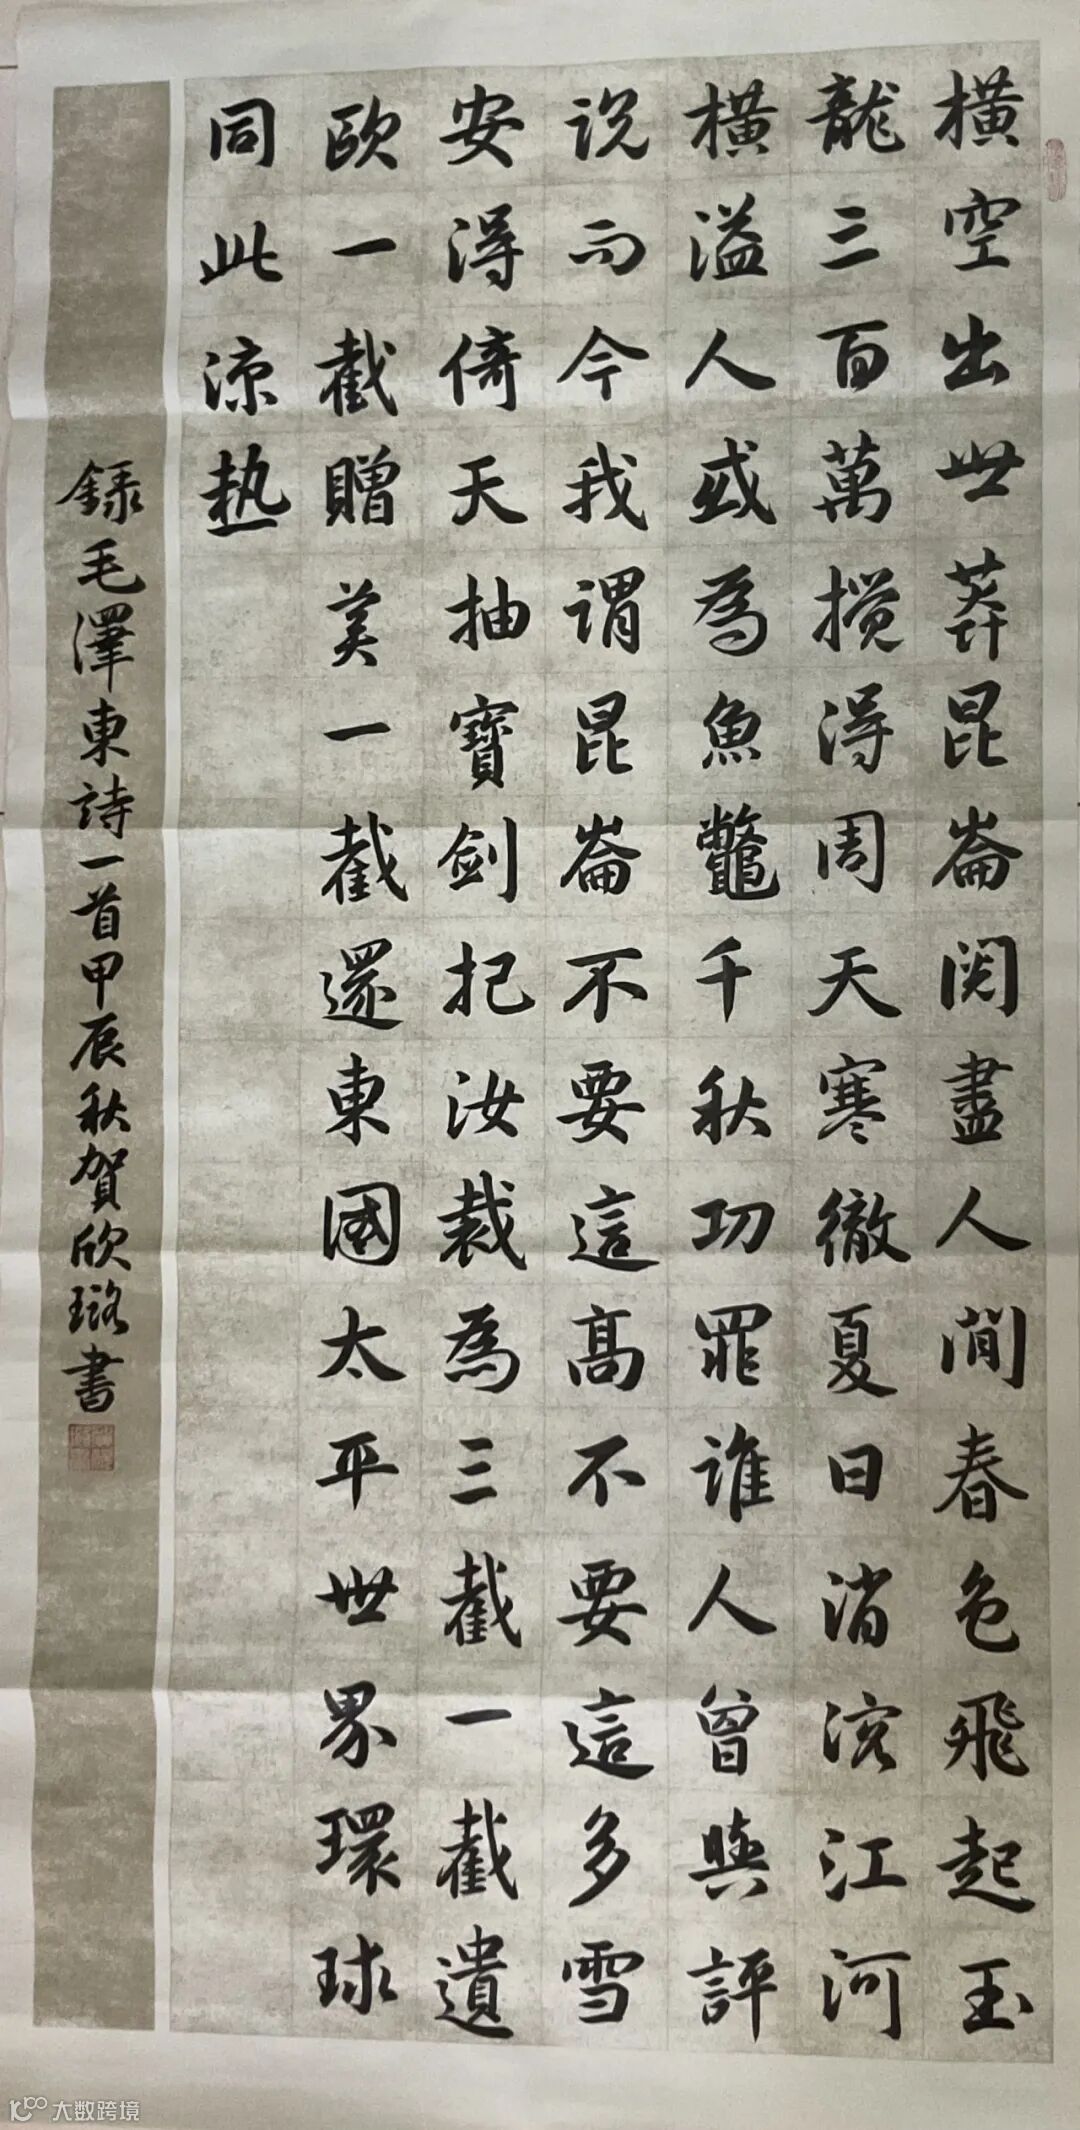 橫空出世莽昆崙閱盡人間春色飛起玉
龍三百萬攪得周天寒徹夏日消溶江河
橫溢人或為魚鼈千秋功罪誰人曾與評
说而今我谓昆崙不要這高不要這多雪
安得倚天抽寶劍把汝裁為三截一截遺
欧一截贈美一截還東國太平世界環球
同此涼熱
錄毛澤東詩一首甲辰秋賀欣璐書
大数跨境